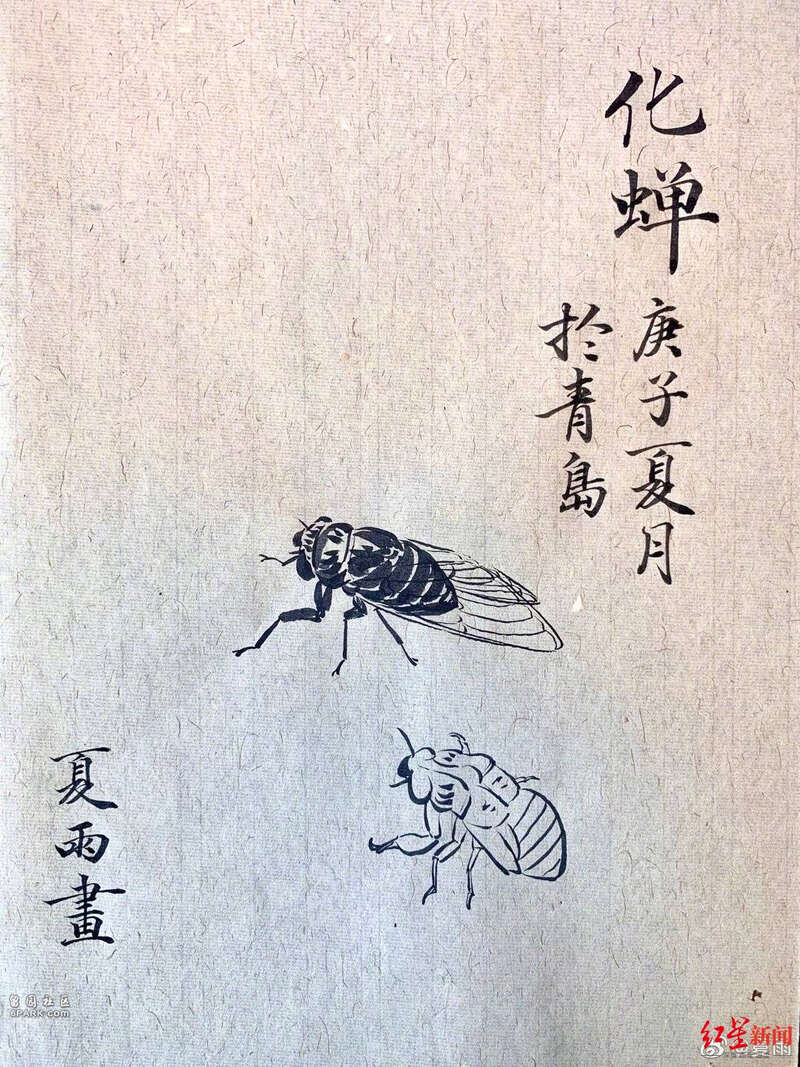 化蝉
庚子夏月
於青島
夏雨畫
留园社区
6PARK.com
红星新闻
@夏雨